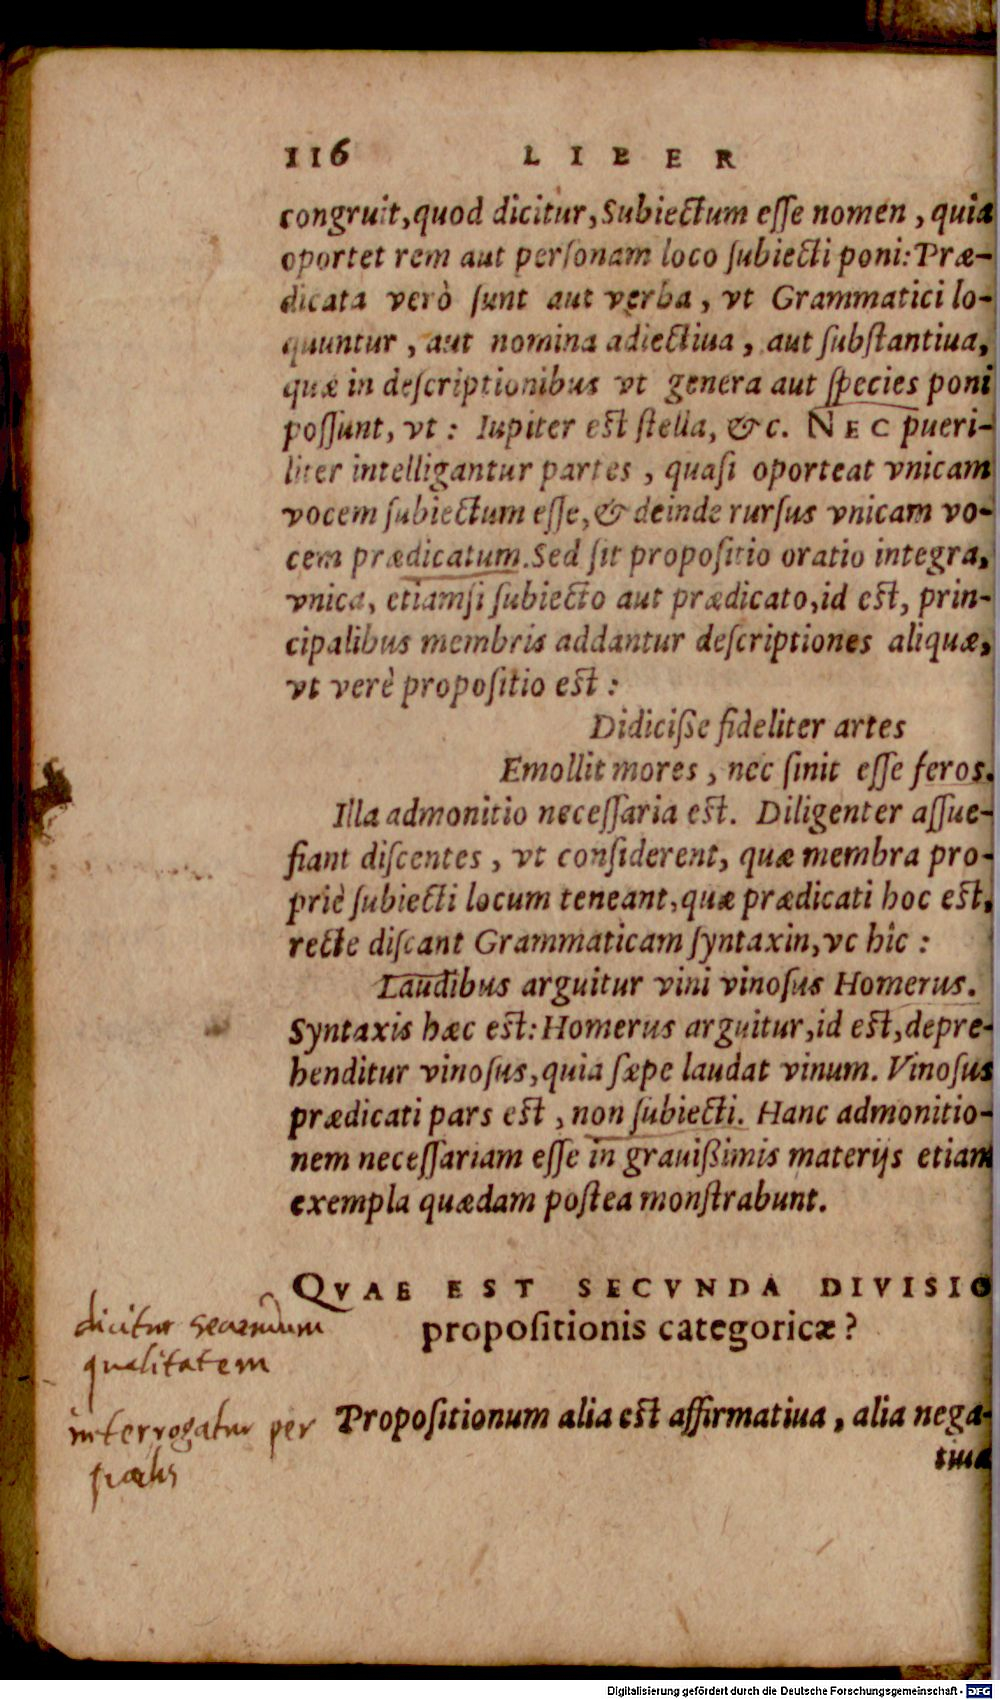 116 LIBER
congruit, quod dicitur, Subiectum esse nomen, quia
oportet rem aut personam loco subiecti poni: Præ-
dicata verò sunt aut verba, vt Grammatici lo-
quuntur, aut nomina adiectiua, aut substantiua,
quæ in descriptionibus vt genera aut species poni
possunt, vt: Iupiter est stella, &c. NEC pueri-
liter intelligantur partes, quasi oporteat vnicam
vocem subiectum esse, & deinde rursus vnicam vo-
cem prædicatum. Sed sit propositio oratio integra,
vnica, etiamsi subiecto aut prædicato, id est, prin-
cipalibus membris addantur descriptiones aliquæ,
vt verè propositio est:
Didicisse fideliter artes
Emollit mores, nec sinit esse feros.
Illa admonitio necessaria est. Diligenter assue-
fiant discentes, vt considerent, quæ membra pro-
priè subiecti locum teneant, quæ prædicati hoc est,
recte discant Grammaticam syntaxin, vc hîc:
Laudibus arguitur vini vinosus Homerus.
Syntaxis hæc est: Homerus arguitur, id est, depre-
henditur vinosus, quia sæpe laudat vinum. Vinosus
prædicati pars est, non subiecti. Hanc admonitio-
nem necessariam esse in grauissimis materijs etiam
exempla quædam postea monstrabunt.
QVAE EST SECVNDA DIVISIO
propositionis categoricæ?
dicitur secundum
qualitatem
interrogatur per
qualis
Propositionum alia est affirmatiua, alia nega-
tiua
Digitalisierung gefördert durch die Deutsche Forschungsgemeinschaft - DFG